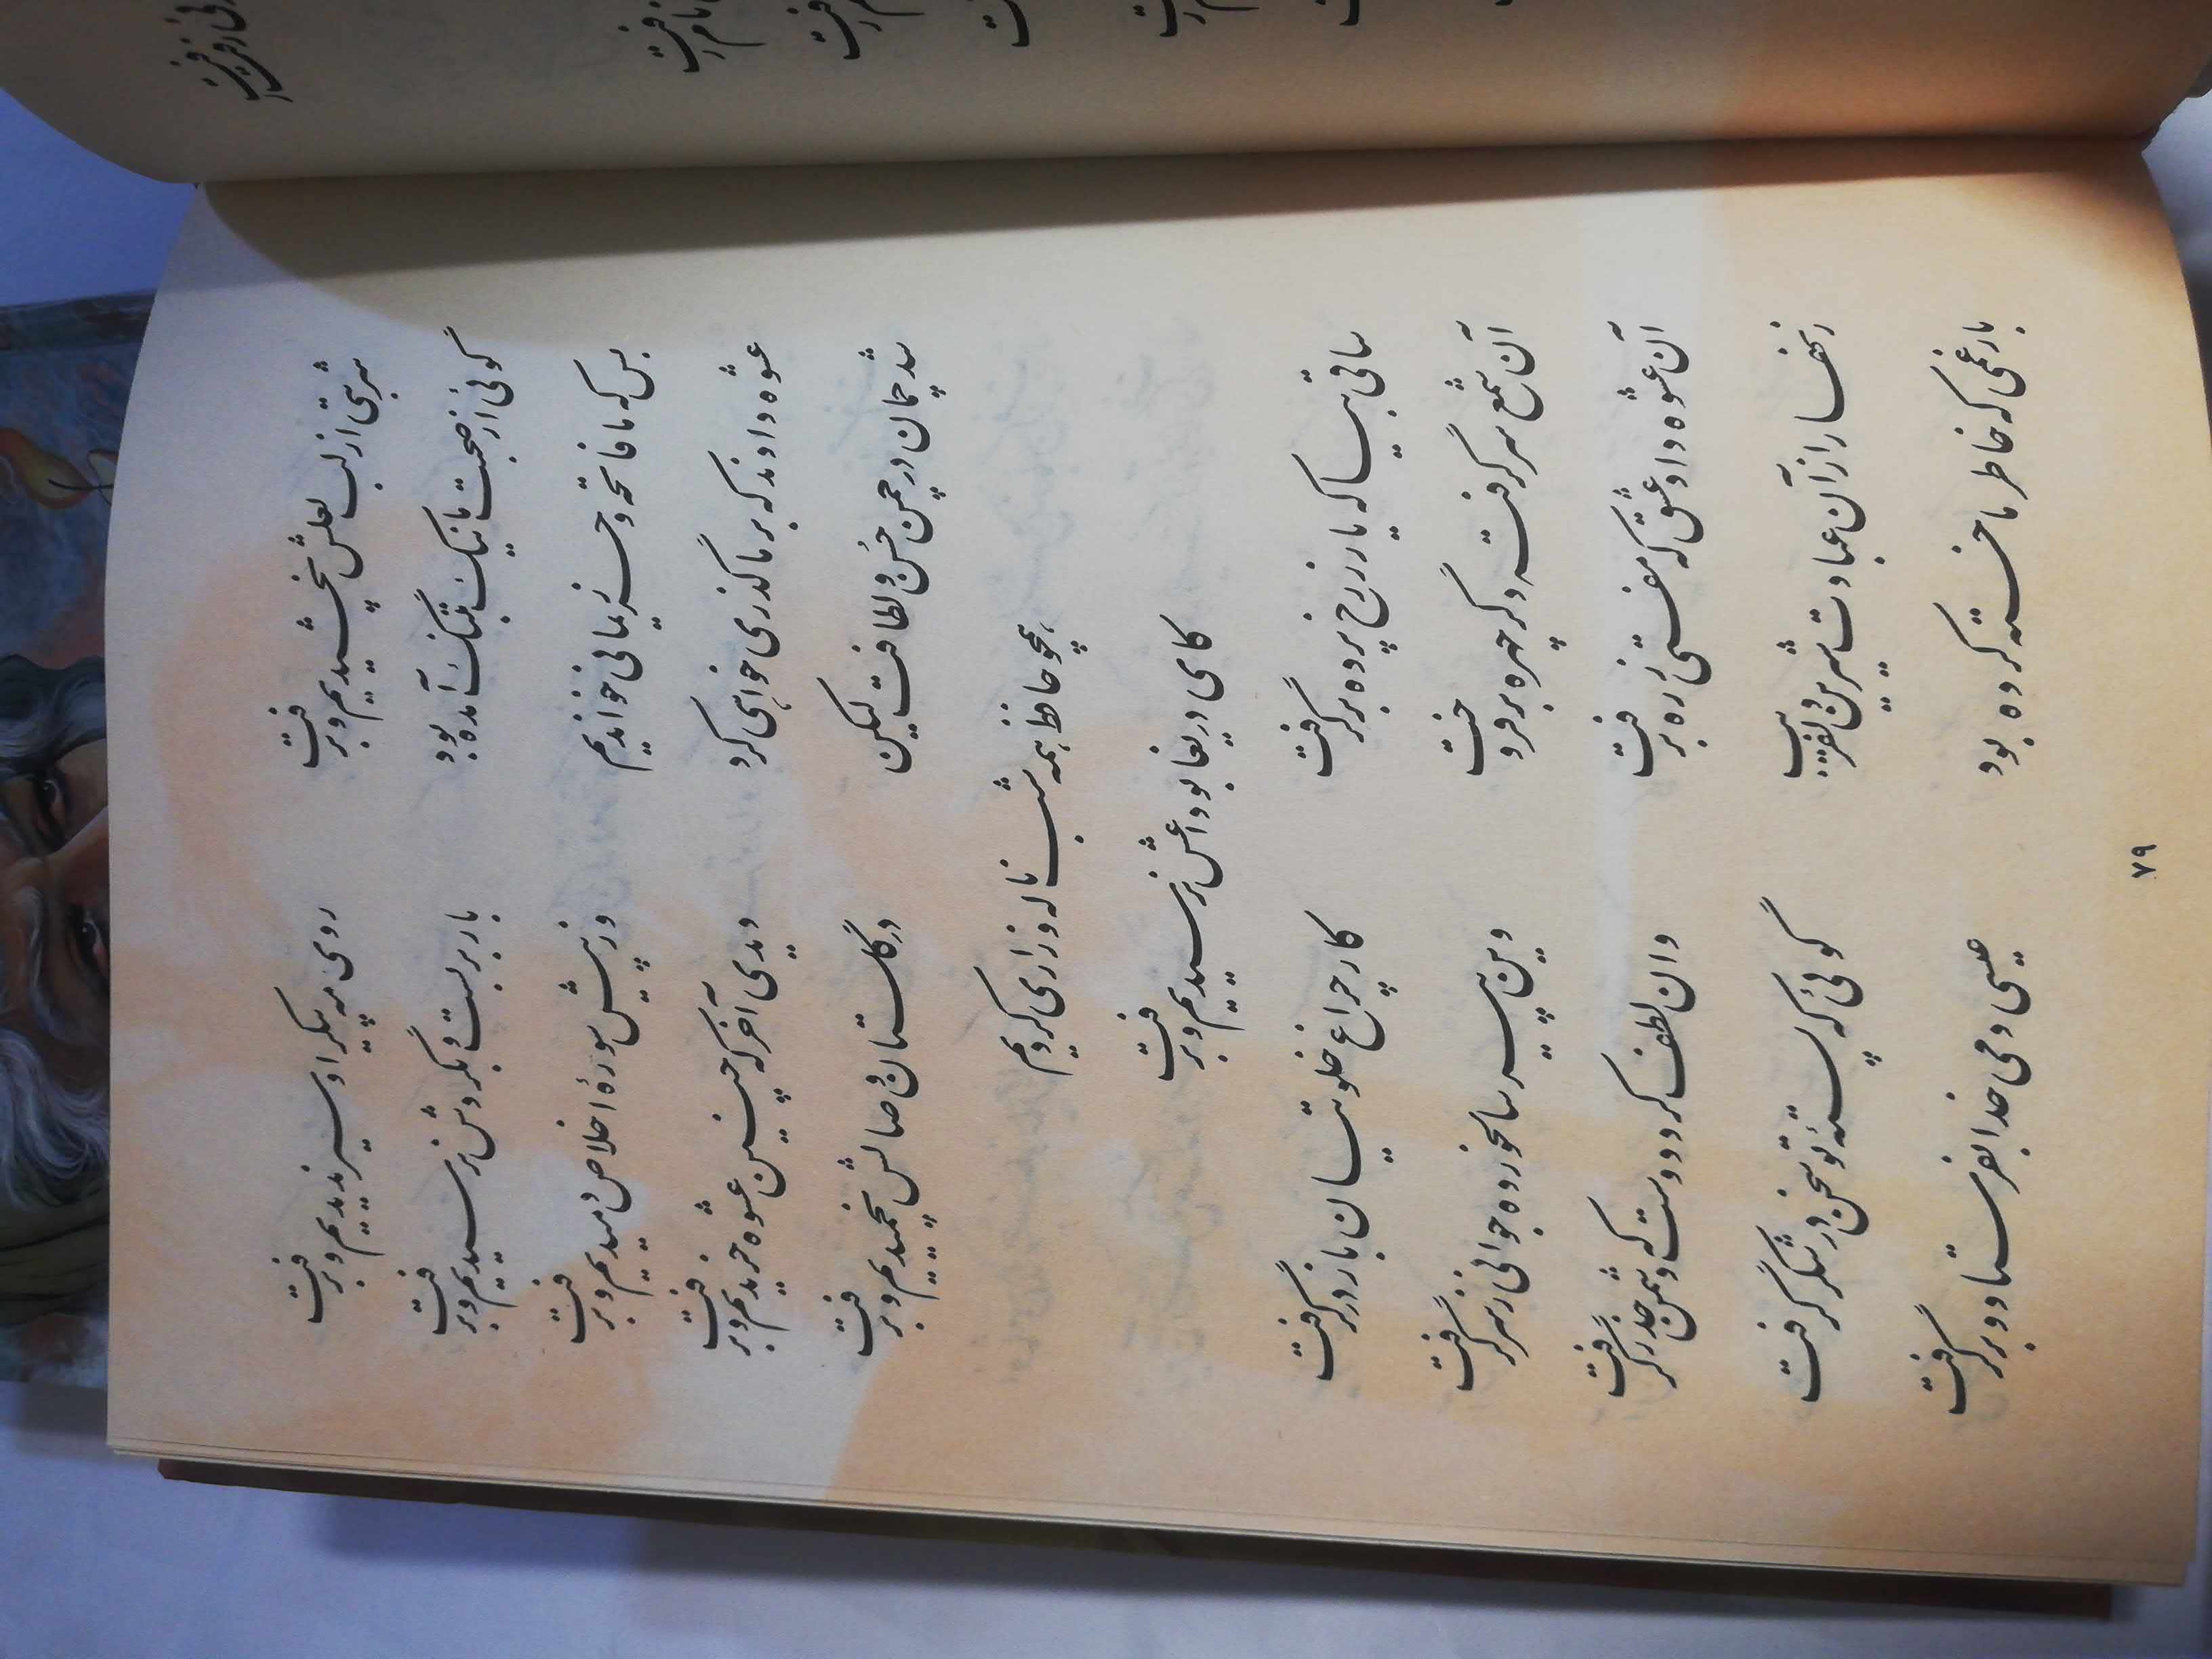 شربتی از لب لعلش نچشیدیم و برفت
روی مه پیکر او سیر ندیدیم و برفت
گوئی از صحبت ما نیک بتنگ آمده بود
بار بربست و بگردش نرسیدیم و برفت
بس که ما فاتحه و حرز یمانی خواندیم
وز پیش سورهٔ اخلاص دمیدیم و برفت
عشوه دادند که بر ما گذری خواهی کرد
دیدی آخر که چنین عشوه خریدیم و برفت
شد چمان در چمن حسن و لطافت لیکن
در گلستان وصالش نچمیدیم و برفت
همچو حافظ همه شب ناله و زاری کردیم
کای دریغا بوداعش نرسیدیم و برفت
ساقی بیا که یار ز رخ پرده برگرفت
کار چراغ خلوتیان باز درگرفت
آن شمع سر گرفته دگر چهره برفروخت
وین پیر سالخورده جوانی ز سر گرفت
آن عشوه داد عشق که مفتی ز ره برفت
وان لطف کرد دوست که دشمن حذر گرفت
زنهار از آن عبادت شیرین دلفریب
گوئی که پستهٔ تو سخن در شکر گرفت
بار غمی که خاطر ما خسته کرده بود
عیسی دمی خدا بفرستاد و برگرفت
۷۹